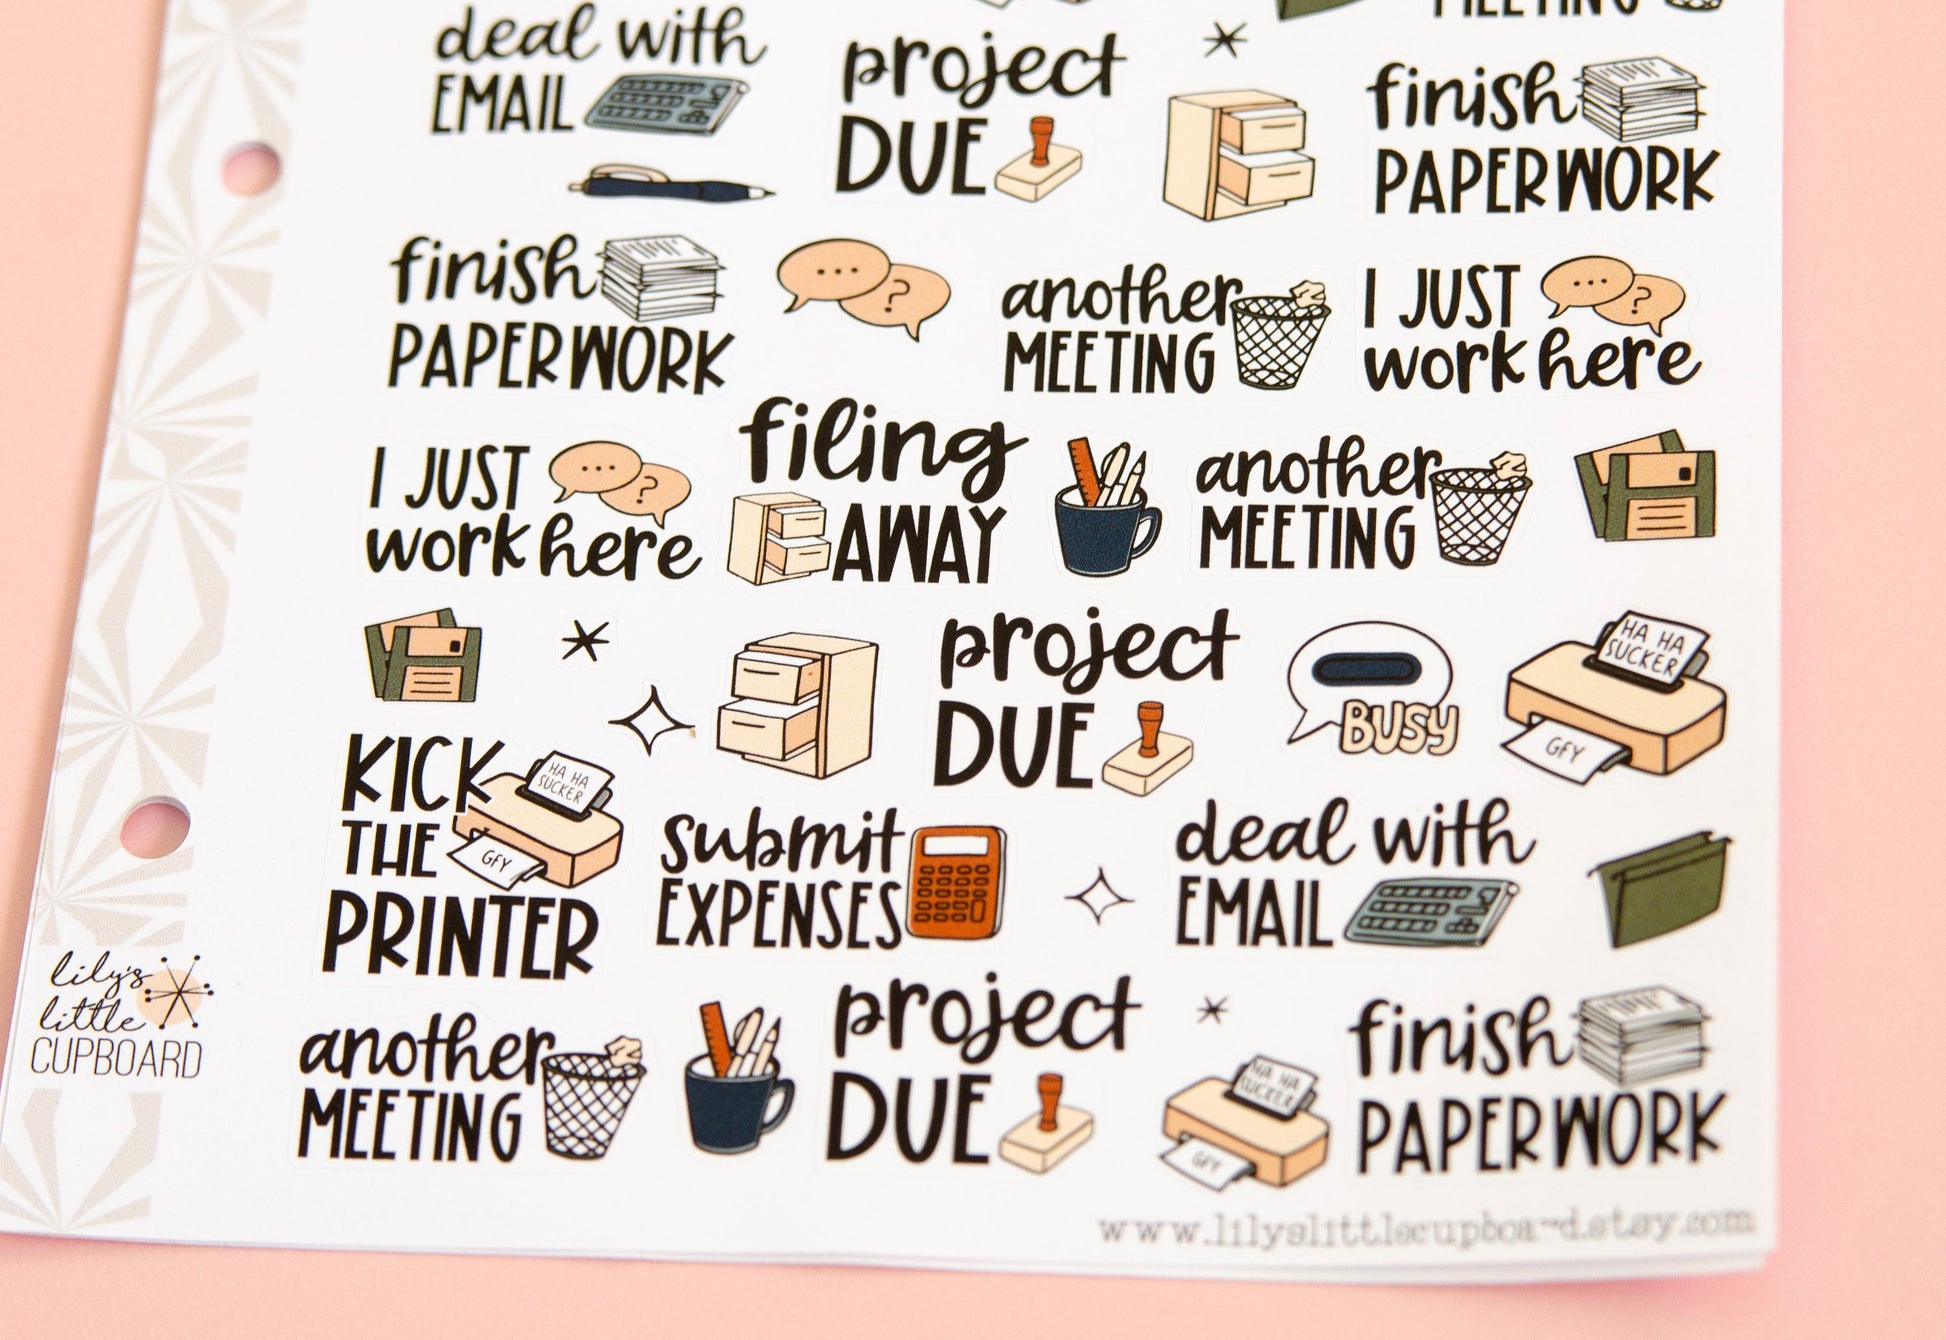 MEETING
deal with
EMAIL
project
DUE
finish
PAPERWORK
finish
PAPERWORK
?
another
MEETING
I JUST
work here
?
I JUST
work here
?
filing
AWAY
another
MEETING
project
DUE
BUSY
HA HA
SUCKER
GFY
KICK
THE
PRINTER
HA HA
SUCKER
GFY
submit
EXPENSES
deal with
EMAIL
lily's
little
CUPBOARD
another
MEETING
project
DUE
HA HA
SUCKER
GFY
finish
PAPERWORK
www.lilyslittlecupboard.etsy.com